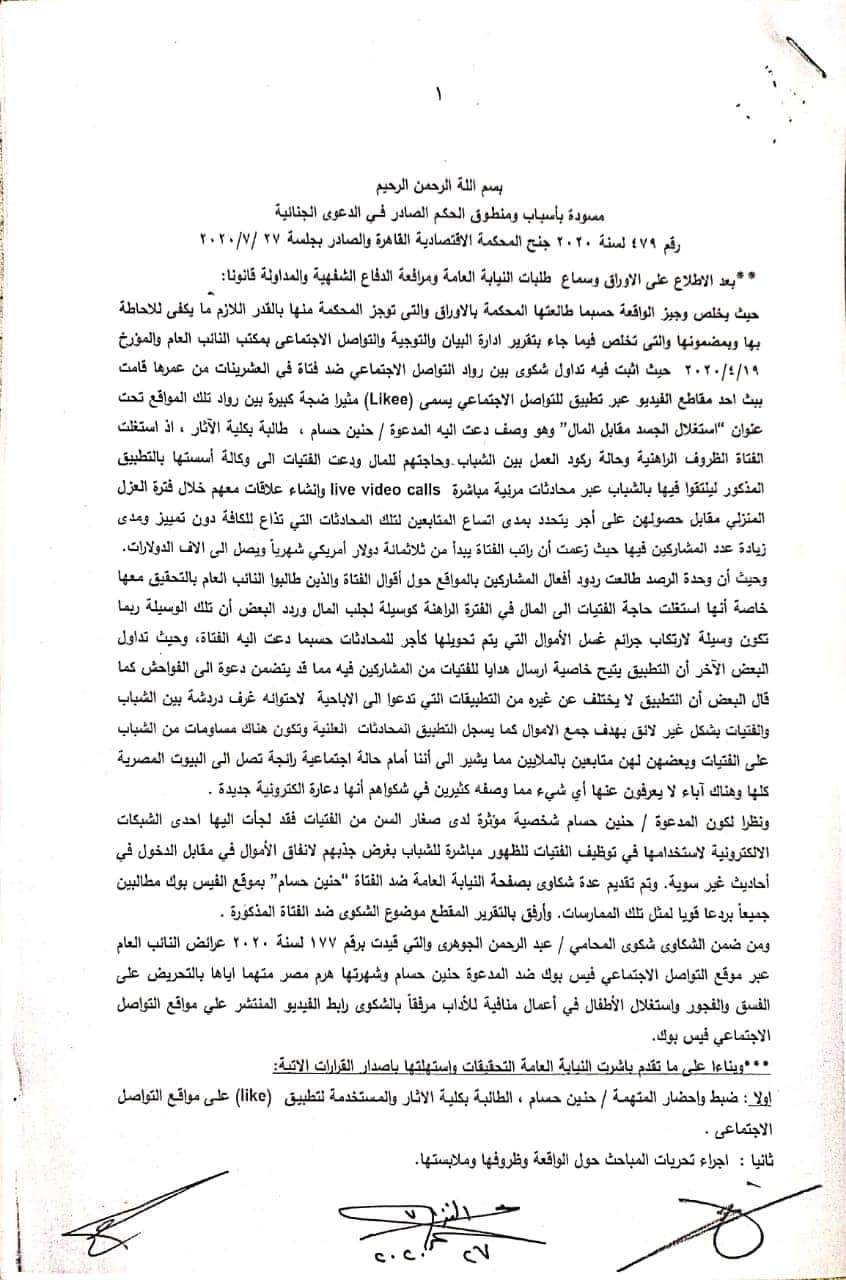 ١
بسم اللة الرحمن الرحيم
مسودة بأسباب ومنطوق الحكم الصادر في الدعوى الجنائية
رقم ٤٧٩ لسنة ٢٠٢٠ جنح المحكمة الاقتصادية القاهرة والصادر بجلسة ٢٧ /٢٠٢٠/٧
**بعد الاطلاع على الاوراق وسماع طلبات النيابة العامة ومرافعة الدفاع الشفهية والمداولة قانونا:
حيث يخلص وجيز الواقعة حسبما طالعتها المحكمة بالاوراق والتى توجز المحكمة منها بالقدر اللازم ما يكفى للاحاطة
بها وبمضمونها والتى تخلص فيما جاء بتقرير ادارة البيان والتوجية والتواصل الاجتماعى بمكتب النائب العام والمؤرخ
٢٠٢٠/٤/١٩ حيث اثبت فيه تداول شكوى بين رواد التواصل الاجتماعي ضد فتاة في العشرينات من عمرها قامت
ببث احد مقاطع الفيديو عبر تطبيق للتواصل الاجتماعي يسمى (Likee) مثيرا ضجة كبيرة بين رواد تلك المواقع تحت
عنوان "استغلال الجسد مقابل المال" وهو وصف دعت اليه المدعوة / حنين حسام ، طالبة بكلية الآثار ، اذ استغلت
الفتاة الظروف الراهنية وحالة ركود العمل بين الشباب وحاجتهم للمال ودعت الفتيات الى وكالة أسستها بالتطبيق
المذكور ليلتقوا فيها بالشباب عبر محادثات مرئية مباشرة live video calls وإنشاء علاقات معهم خلال فترة العزل
المنزلي مقابل حصولهن على أجر يتحدد بمدى اتساع المتابعين لتلك المحادثات التي تذاع للكافة دون تمييز ومدى
زيادة عدد المشاركين فيها حيث زعمت أن راتب الفتاة يبدأ من ثلاثمانة دولار أمريكي شهرياً ويصل الى الاف الدولارات.
وحيث أن وحدة الرصد طالعت ردود أفعال المشاركين بالمواقع حول أقوال الفتاة والذين طالبوا النائب العام بالتحقيق معها
خاصة أنها استغلت حاجة الفتيات الى المال في الفترة الراهنة كوسيلة لجلب المال وردد البعض أن تلك الوسيلة ربما
تكون وسيلة لارتكاب جرائم غسل الأموال التي يتم تحويلها كأجر للمحادثات حسبما دعت اليه الفتاة، وحيث تداول
البعض الآخر أن التطبيق يتيح خاصية ارسال هدايا للفتيات من المشاركين فيه مما قد يتضمن دعوة الى الفواحش كما
قال البعض أن التطبيق لا يختلف عن غيره من التطبيقات التي تدعوا الى الاباحية لاحتوانه غرف دردشة بين الشباب
والفتيات بشكل غير لائق بهدف جمع الاموال كما يسجل التطبيق المحادثات العلنية وتكون هناك مساومات من الشباب
على الفتيات وبعضهن لهن متابعين بالملايين مما يشير الى أننا أمام حالة اجتماعية رائجة تصل الى البيوت المصرية
كلها وهناك آباء لا يعرفون عنها أي شيء مما وصفه كثيرين في شكواهم أنها دعارة الكترونية جديدة .
ونظرا لكون المدعوة / حنين حسام شخصية مؤثرة لدى صغار السن من الفتيات فقد لجأت اليها احدى الشبكات
الالكترونية لاستخدامها في توظيف الفتيات للظهور مباشرة للشباب بغرض جذبهم لانفاق الأموال في مقابل الدخول في
أحاديث غير سوية. وتم تقديم عدة شكاوى بصفحة النيابة العامة ضد الفتاة "حنين حسام" بموقع الفيس بوك مطالبين
جميعاً بردعا قويا لمثل تلك الممارسات. وأرفق بالتقرير المقطع موضوع الشكوى ضد الفتاة المذكورة .
ومن ضمن الشكاوى شكوى المحامي / عبد الرحمن الجوهرى والتي قيدت برقم ١٧٧ لسنة ٢٠٢٠ عرائض النائب العام
عبر موقع التواصل الاجتماعي فيس بوك ضد المدعوة حنين حسام وشهرتها هرم مصر متهما اياها بالتحريض على
الفسق والفجور واستغلال الأطفال في أعمال منافية للأداب مرفقاً بالشكوى رابط الفيديو المنتشر علي مواقع التواصل
الاجتماعي فيس بوك.
***وبناءا على ما تقدم باشرت النيابة العامة التحقيقات وإستهلتها باصدار القرارات الاتية:
اولا : ضبط واحضار المتهمة / حنين حسام ، الطالبة بكلية الاثار والمستخدمة لتطبيق (like) على مواقع التواصل
الاجتماعى .
ثانيا : اجراء تحريات المباحث حول الواقعة وظروفها وملابستها.
٢٧ ٢٠٢٠